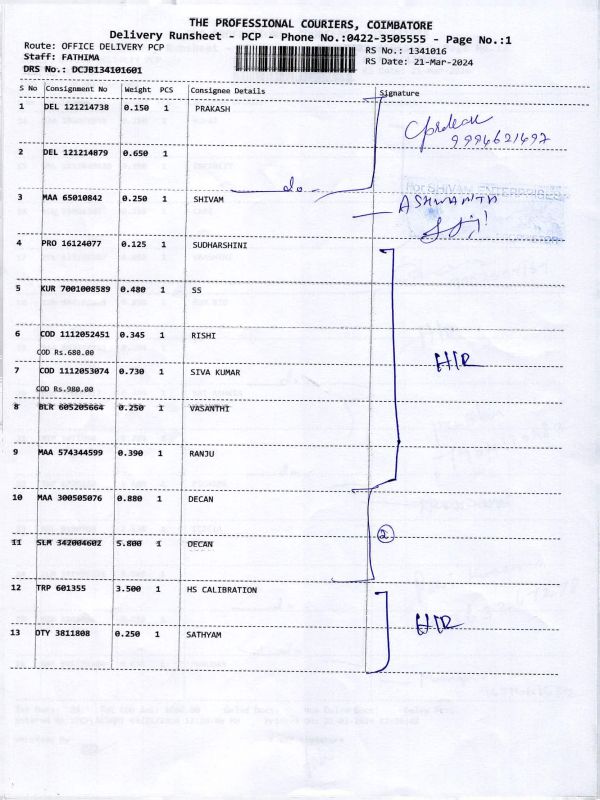 THE PROFESSIONAL COURIERS, COIMBATORE
Delivery Runsheet - PCP - Phone No.:0422-3505555 - Page No.:1
Route: OFFICE DELIVERY PCP
Staff: FATHIMA
DRS No.: DCJB134101601
RS No.: 1341016
RS Date: 21-Mar-2024
S No Consignment No Weight PCS Consignee Details Signature
1 DEL 121214738 0.150 1 PRAKASH
9994621497
2 DEL 121214879 0.650 1
do
3 MAA 65010842 0.250 1 SHIVAM
ASHWANTH
4 PRO 16124077 0.125 1 SUDHARSHINI
5 KUR 7001008589 0.480 1 SS
6 COD 1112052451 0.345 1 RISHI
COD Rs.680.00
H/R
7 COD 1112053074 0.730 1 SIVA KUMAR
COD Rs.980.00
8 BLR 605205664 0.250 1 VASANTHI
9 MAA 574344599 0.390 1 RANJU
10 MAA 300505076 0.880 1 DECAN
2
11 SLM 342004602 5.800 1 DECAN
12 TRP 601355 3.500 1 HS CALIBRATION
H/R
13 OTY 3811808 0.250 1 SATHYAM